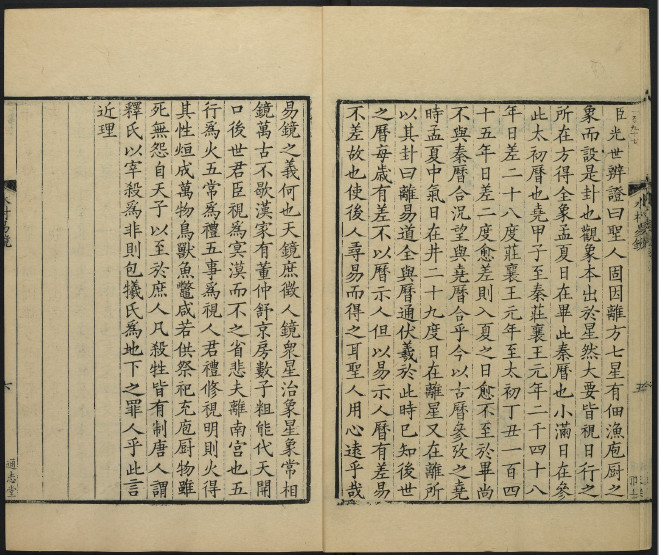 臣光世辨證曰聖人固因離方七星有佃漁庖厨之
象而設是卦也觀象本出於星然大要皆視日行之
所在方得全象孟夏日在畢此秦曆也小滿日在參
此太初曆也堯甲子至秦莊襄王元年二千四十八
年日差二十八度莊襄王元年至太初丁丑一百四
十五年日差二度愈差則入夏之日愈不至於畢尚
不與秦曆合況望與堯曆合乎今以古曆參攷之堯
時孟夏中氣日在井二十九度日在離星又在離所
以其卦曰離易道全與曆通伏羲於此時已知後世
之曆每歲有差不以曆示人但以易示人曆有差易
不差故也使後人尋易而得之耳聖人用心遠乎哉
易鏡之義何也天鏡庶徵人鏡衆星治象星象常相
鏡萬古不歇漢家有董仲舒京房數子粗能代天開
口後世君臣視爲㝠漠而不之省悲夫離南宫也五
行爲火五常爲禮五事爲視人君禮修視明則火得
其性烜成萬物鳥獸魚鼈咸若供祭祀充庖厨物雖
死無怨自天子以至於庶人凡殺牲皆有制唐人謂
釋氏以宰殺爲非則包犧氏爲地下之罪人乎此言
近理
六
通志堂